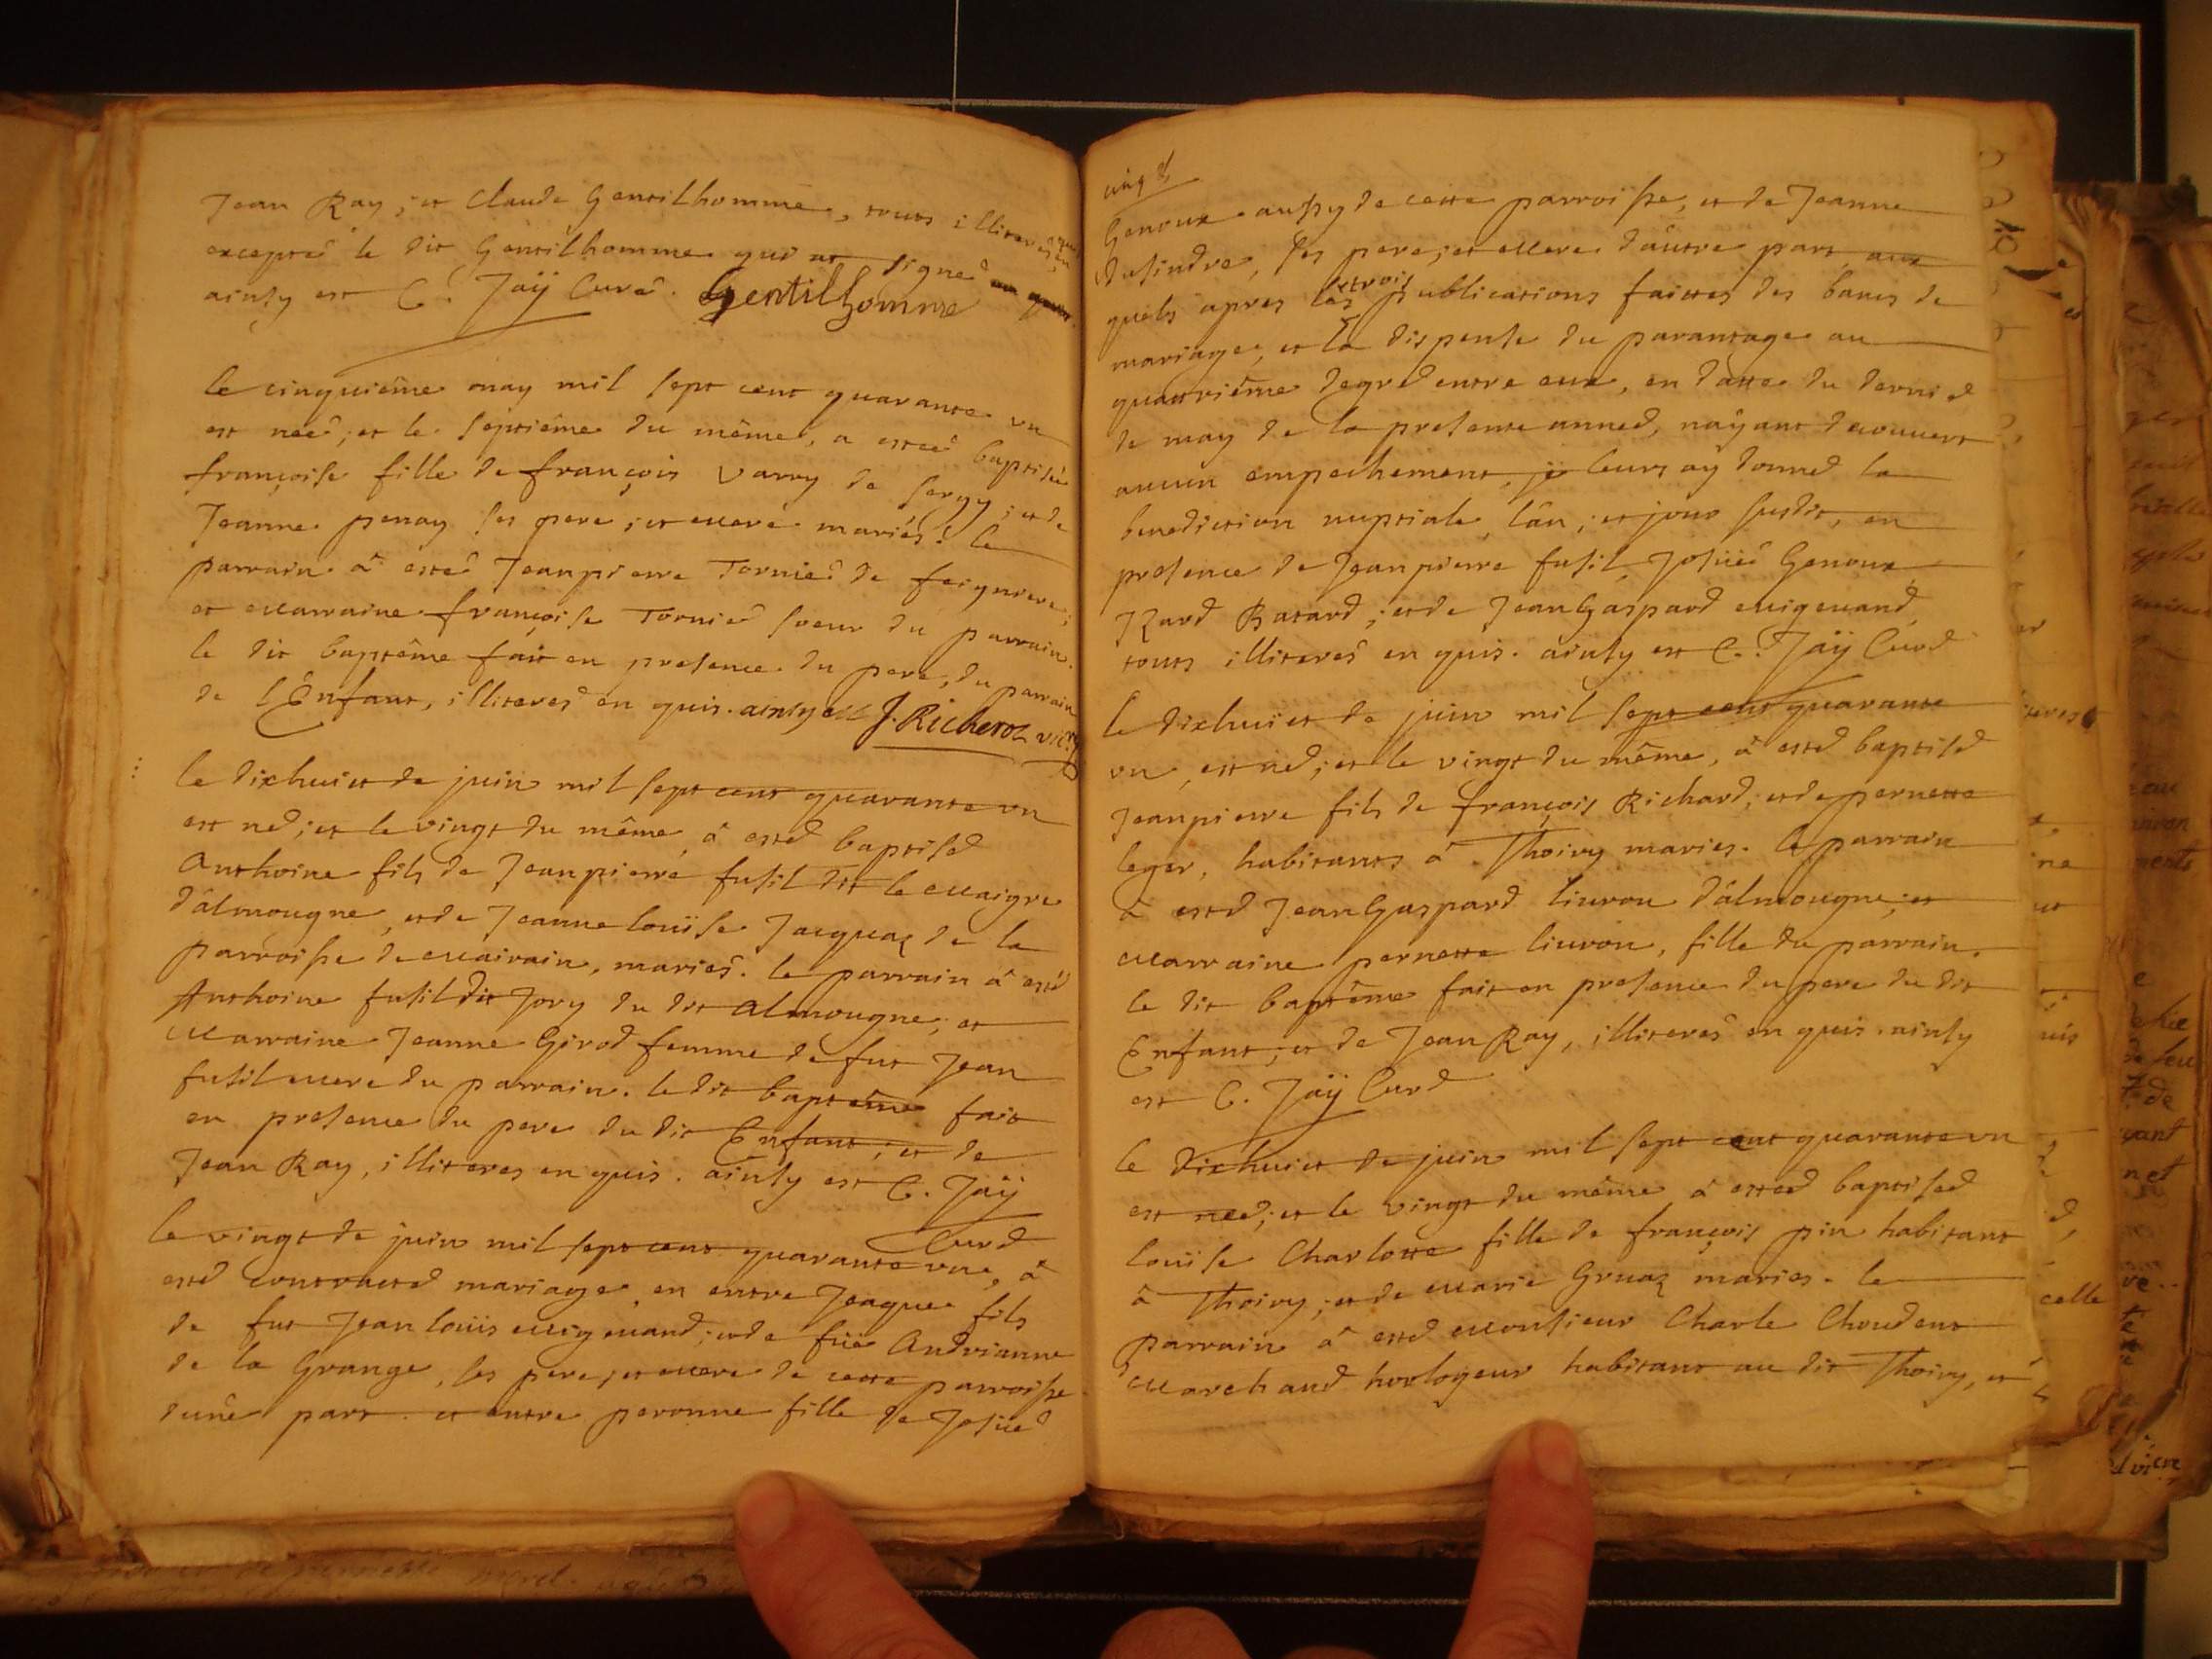 Jean Ray; et Claude Gentilhomme, touts illiteres,
excepté le dit Gentilhomme qui at signé
ainsy est C. Jaÿ Curé. Gentilhomme
le cinquiême may mil sept cent quarante un
est neé; et le septiême du même, a esteé baptiseé
françoise fille de françois Varry de sergy; et de
Jeanne penay ses pere; et mere mariés. le
parrain â esté Jeanpierre Tornier de feigniere;
et marraine françoise Tornier soeur du parrain.
le dit baptême fait en presence du pere, du parrain
de l'Enfant, illiteres en quis. ainsy est J. Richeroz vicr
le dixhuict de juin mil sept cent quarante un
est né; et le vingt du même â esté baptisé
Anthoine fils de Jeanpierre fusil dit le maigre
d'âlmougne, et de Jeanne louïse Jacquaz de la
parroisse de mairain, mariés. le parrain â esté
Anthoine fusil dit Jory du dit almougne; et
marraine Jeanne Girod femme de fut Jean
fusil mere du parrain. le dit baptême fait
en presence du pere du dit Enfant; et de
Jean Ray, illiteres en quis. ainsy est C. Jaÿ
Curé
le vingt de juin mil sept cent quarante un, â
esté contracté mariage en entre Jaques fils
de fut Jean louïs migmand; et de füe Andrianne
de la Grange, ses pere; et mere de cette parroisse
dune part. et entre peronne fille de Josüé
vingt
Genoux aussy de cette parroisse, et de Jeanne
dusindre, ses pere; et mere d'âutre part, aux
quels apres les trois publications faittes des bancs de
mariage, et la dispense du parantage au
quattriême degré entre eux, en datte du dernié
de may de la presente anneé, nâyant decouvert
aucun empechement, je leurs aÿ donné la
benediction nuptiale, lân; et jour susdit, en
presence de Jeanpierre fusil, Josüé Genoux
Izard Batard; et de JeanGaspard migmand,
touts illiteres en quis. ainsy est C. Jaÿ Curé
le dixhuict de juin mil sept cent quarante
un, est né; et le vingt du même, â esté baptisé
Jeanpierre fils de françois Richard; et de pernette
leger, habitants â Thoiry mariés. le parrain
â esté JeanGaspard liuron d'âlmougne; et
marraine pernette liuron, fille du parrain.
le dit baptême fait en presence du pere du dit
Enfant; et de Jean Ray, illiteres en quis. ainsy
est C. Jaÿ Curé
le dixhuict de juin mil sept cent quarante un
est neé; et le vingt du même â esteé baptiseé
louïse Charlotte fille de françois pin habitant
â Thoiry; et de marie Gruaz mariés. le
parrain â esté monsieur Charle Choudens
marchand horlogeur habitant au dit Thoiry, et